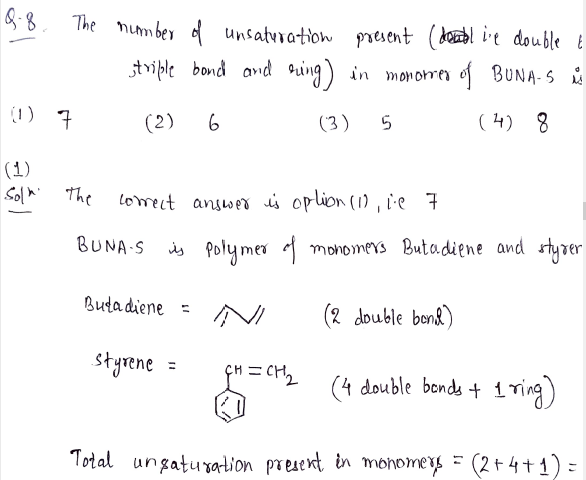 Q-8. The number of unsaturation present (i.e double
triple bond and ring) in monomer of BUNA-S is
(1) 7 (2) 6 (3) 5 (4) 8
(1)
Solⁿ. The correct answer is option (1), i.e 7
BUNA-S is polymer of monomers Butadiene and
Butadiene = (2 double bond)
Styrene = CH = CH₂
(4 double bonds + 1 ring)
Total unsaturation present in monomers = (2+4+1) =